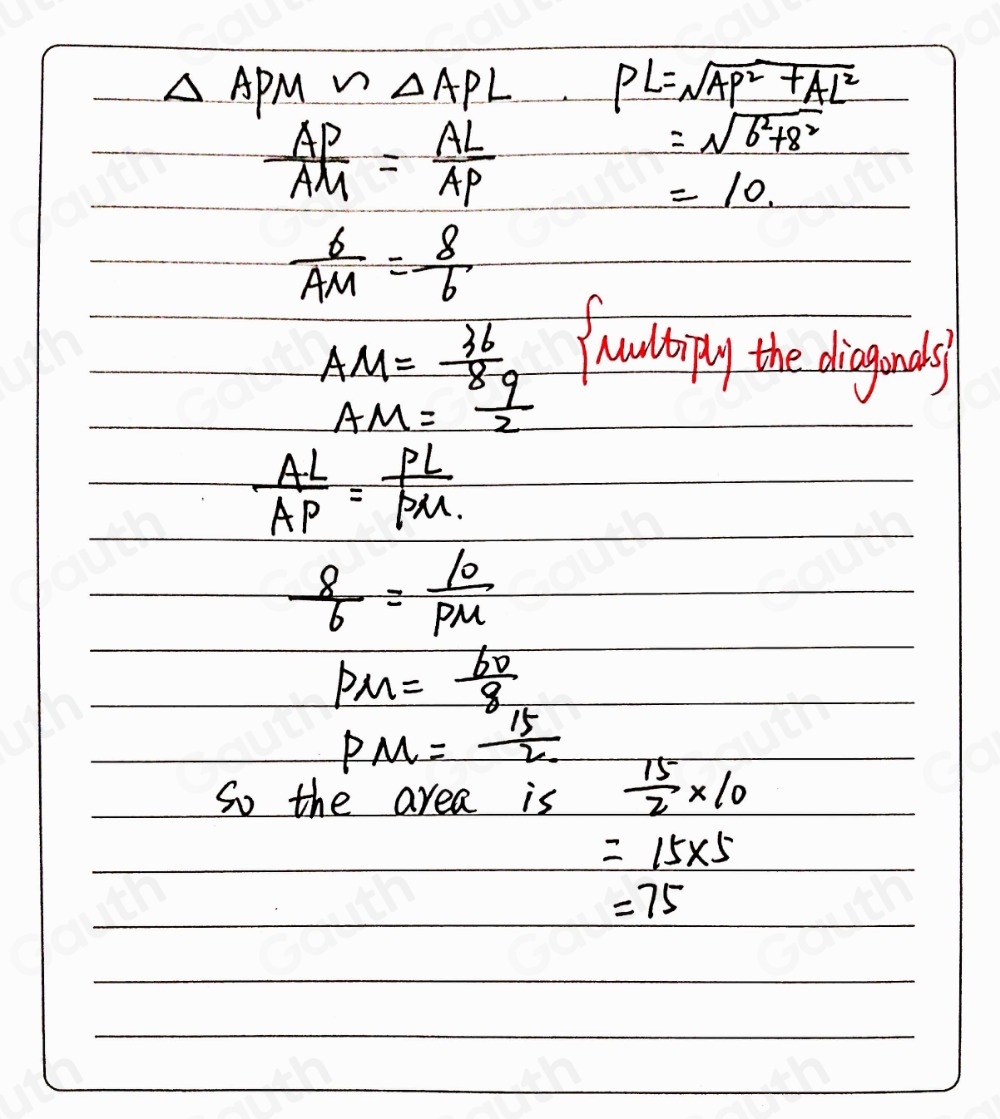 △ APM ∽ △ APL . PL=√AP² + AL²
AP/AM = AL/AP = √6²+8²
= 10.
6/AM = 8/6
AM = 36/8 {Multiply the diagonals}
AM = 9/2
AL/AP = PL/PM.
8/6 = 10/PM
PM = 60/8
PM = 15/2.
So the area is 15/2 × 10
= 15×5
=75